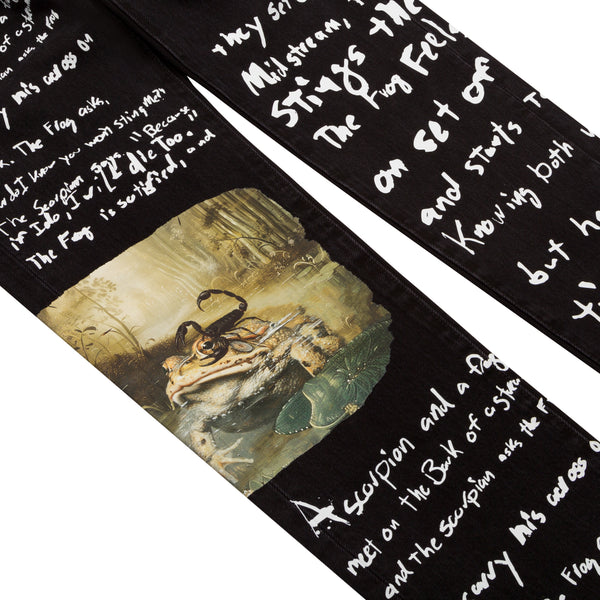 of a St
asks the Frog
his across on
The Frog asks,
do I know you won't sting me?
The Scorpion says "Because
if I do, I will die Too."
The Frog is satisfied, and
they set o
Midstream, t
Stings the
The Frog Feels
on set of
and starts T
Knowing both
but he
A scorpion and a Frog
meet on the Bank of a Strea
and the scorpion asks the F
arry his across on
The Frog as
know